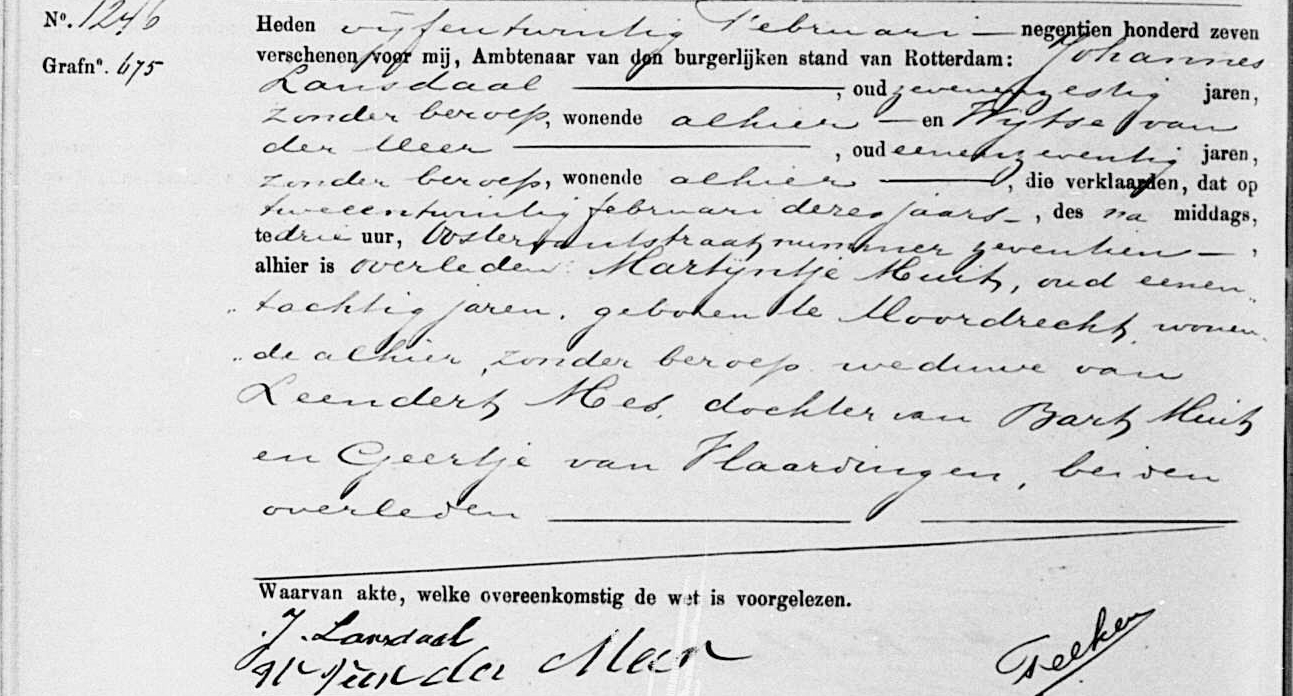 No. 1246
Grafno. 675
Heden vijfentwintig Februari — negentien honderd zeven
verschenen voor mij, Ambtenaar van den burgerlijken stand van Rotterdam: Johannes
Lansdaal —, oud zevenenzestig jaren,
zonder beroep, wonende alhier — en Wytse van
der Meer —, oud eenenzeventig jaren,
zonder beroep, wonende alhier —, die verklaarden, dat op
tweeentwintig februari dezes jaars —, des na middags,
te drie uur, Oostervantstraat nummer zeventien —,
alhier is overleden: Martijntje Muit, oud eenen
tachtig jaren, geboren te Moordrecht, wonen
de alhier, zonder beroep, weduwe van
Leendert Mes, dochter van Bart Muit
en Geertje van Vlaardingen, beiden
overleden —
Waarvan akte, welke overeenkomstig de wet is voorgelezen.
J. Lansdaal
W van der Meer